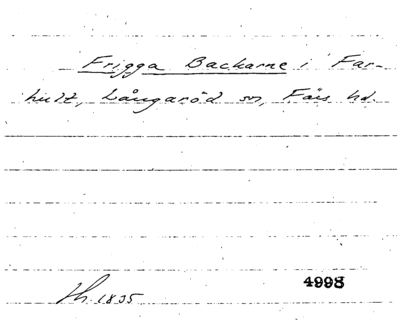 Frigga Backarne i Far-
hult, Långaröd sn, Färs hd.
Th. 1835
4998